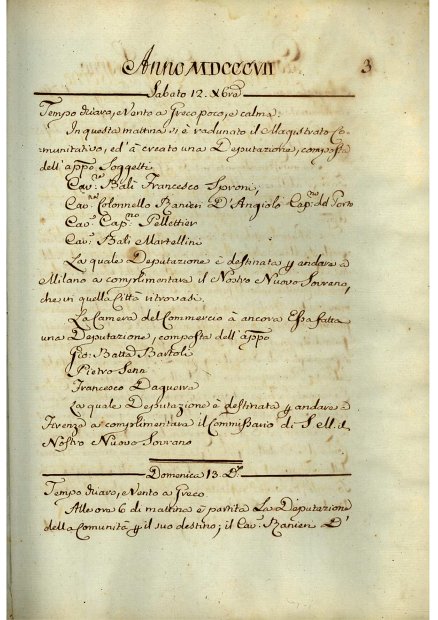 Anno MDCCCVII
3
Sabato 12. Xbre
Tempo chiaro, e Vento a Greco poco, e calma.
In questa mattina si è radunato il Magistrato Co-
munitativo, ed' à creato una Deputazione, composta
dell'appo. Soggetti
Cav. Balì Francesco Sproni,
Cav. Colonnello Ranieri D'Angiolo Capno. del Porto
Cav. Capno. Pellettier
Cav. Balì Martellini
La quale Deputazione è destinata p andare a
Milano a complimentare il Nostro Nuovo Sovrano,
che in quella Città ritrovasi.
La Camera del Commercio à ancora Essa fatta
una Deputazione, composta dell'appo
Gio: Batta Bartoli
Pietro Senn
Francesco Daqueira
La quale Deputazione è destinata p andare a
Firenze a complimentare il Commissario di S
Nostro Nuovo Sovrano
Domenica 13. Do.
Tempo chiaro, e Vento a Greco
Alle ore 6 di mattina è partita La Deputazione
della Comunità p il suo destino; il Cav. Ranieri D'